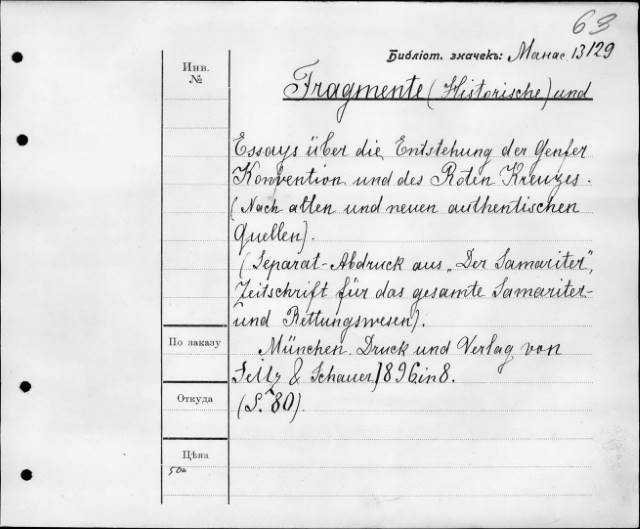 63
Библіот. значекъ: Манас. 13/129
Инв.
№
Fragmente (Historische) und
Essays über die Entstehung der Genfer
Konvention und des Roten Kreuzes.
(Nach alten und neuen authentischen
Quellen).
(Separat-Abdruck aus „Der Samariter",
Zeitschrift für das gesamte Samariter-
und Rettungswesen).
По заказу
München. Druck und Verlag von
Seitz & Schauer, 1896. in 8.
Откуда
(S. 80).
Цѣна